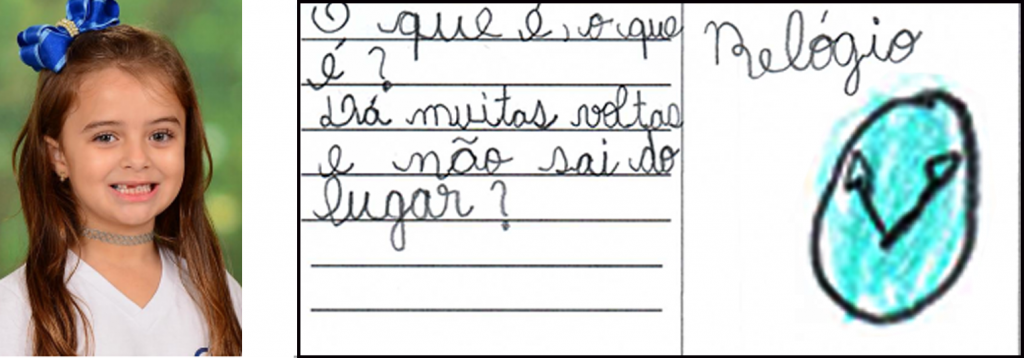 O que é, o que
é?
Dá muitas voltas
e não sai do
lugar?
Relógio